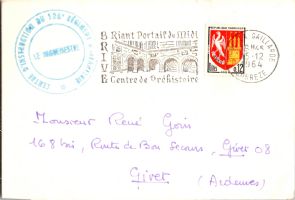 CENTRE D'INSTRUCTION DU 126e RÉGIMENT
LE VAGUEMESTRE
BRIVE
Riant Portail du Midi
Centre de Préhistoire
RÉPUBLIQUE FRANÇAISE
0,12
GAILLARDE
5-12
1964
CORREZE
Monsieur René Goin
168 bis, Route de Bon Secours. Givet 08
Givet
(Ardennes)